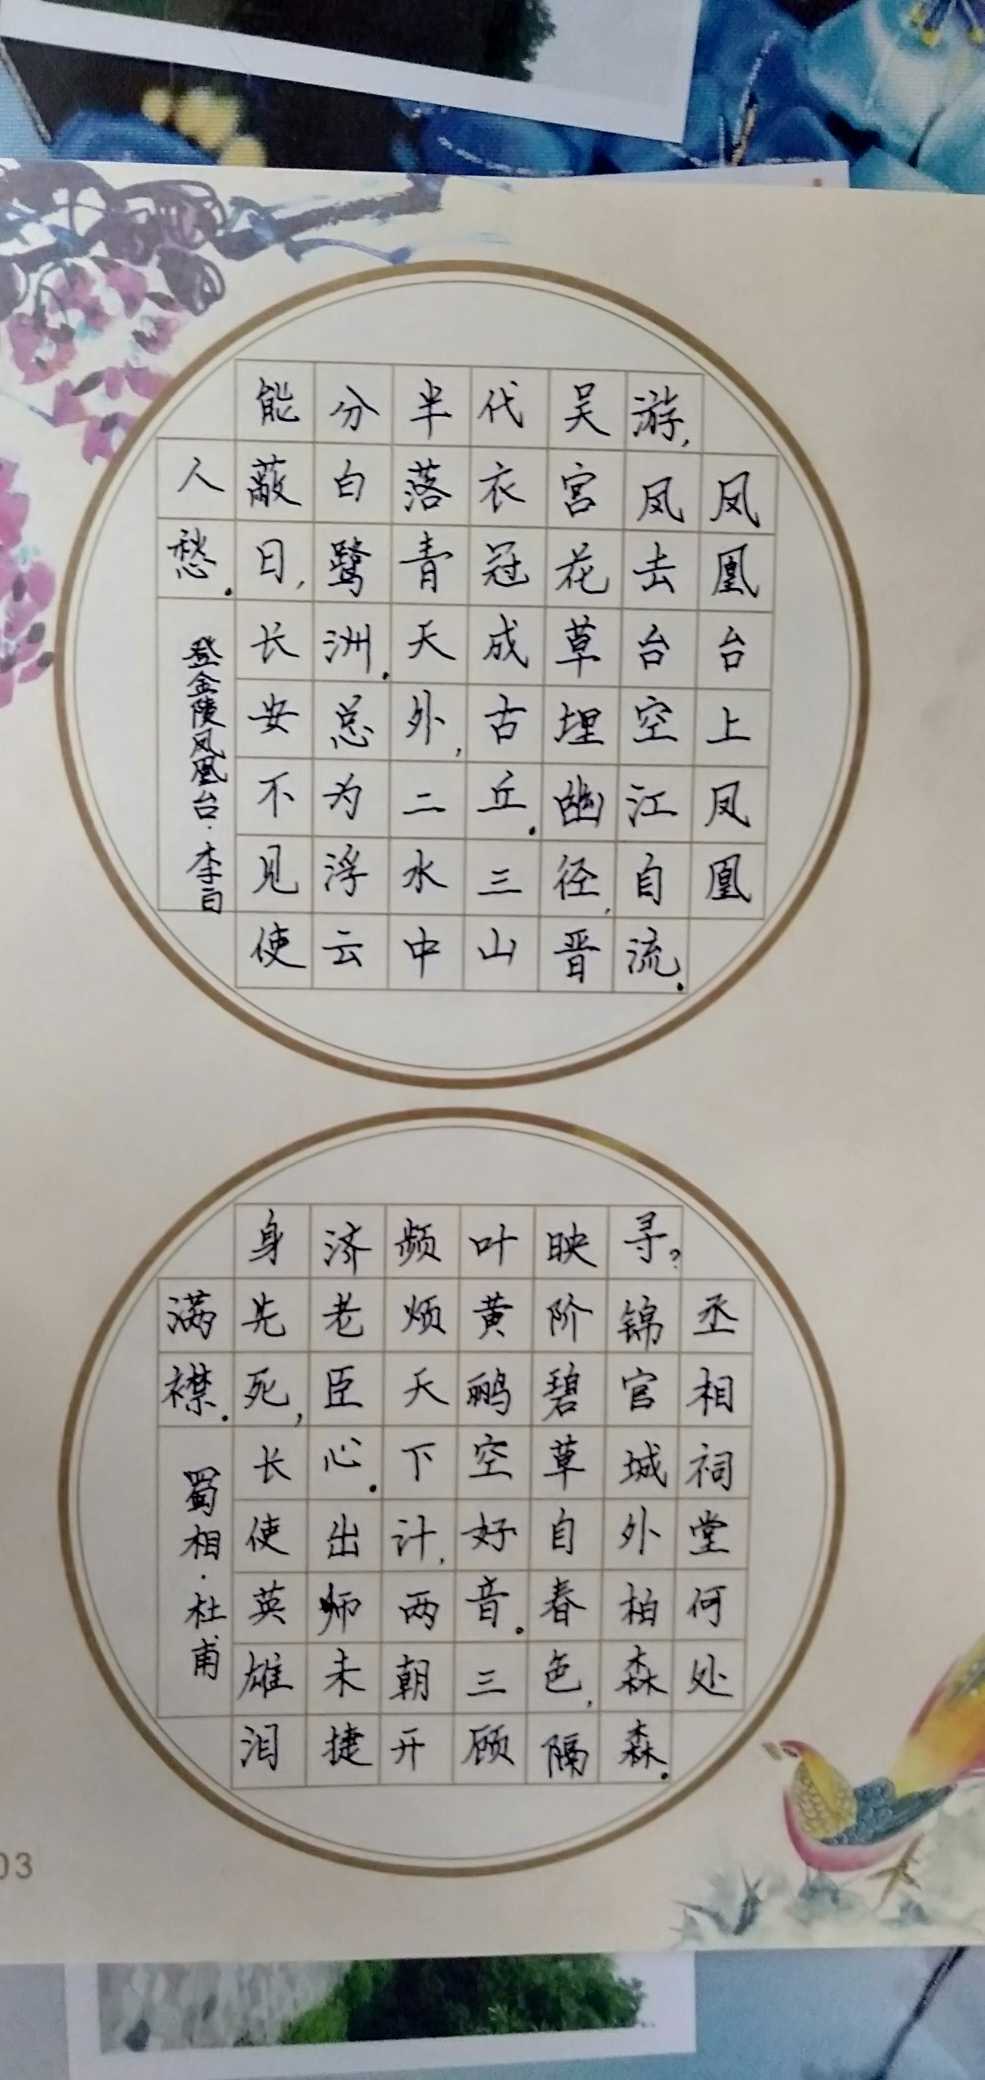 凤凰台上凤凰
游,凤去台空江自流.
吴宫花草埋幽径,晋
代衣冠成古丘.三山
半落青天外,二水中
分白鹭洲.总为浮云
能蔽日,长安不见使
人愁.
登金陵凤凰台·李白
丞相祠堂何处
寻?锦官城外柏森森.
映阶碧草自春色,隔
叶黄鹂空好音.三顾
频烦天下计,两朝开
济老臣心.出师未捷
身先死,长使英雄泪
满襟.
蜀相·杜甫
03